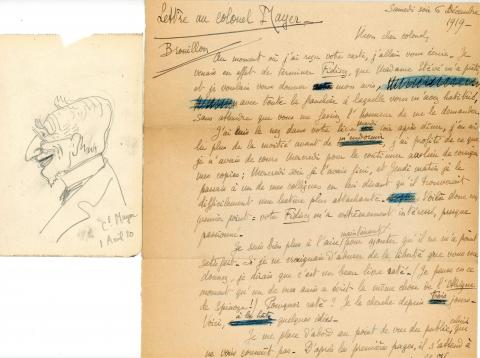 Lettre au colonel Mayer
Samedi soir 6 Décembre
1919-
Brouillon
Mon cher colonel,
Au moment où j'ai reçu votre carte, j'allais vous écrire. Je
venais en effet de terminer que Madame m'a prêté
et je voulais vous donner mon avis,
avec toute la franchise à laquelle vous m'avez habitué,
sans attendre que vous me fassiez l'honneur de me le demander.
J'ai mis le nez dans votre livre mardi soir après dîner, j'en ai
lu plus de la moitié avant de m'endormir, j'ai profité de ce que
je n'avais de cours Mercredi pour le continuer au lieu de corriger
mes copies ; Mercredi soir je l'avais fini, et Jeudi matin je le
passais à un de mes collègues en lui disant qu'il trouverait
difficilement une lecture plus attachante. Voilà donc un
premier point : votre m'a extrêmement intéressé, presque
passionné.
Je suis bien plus à l'aise maintenant pour ajouter qu'il ne m'a point
satisfait. Si je ne craignais d'abuser de la liberté que vous me
donnez, je dirais que c'est un beau livre raté. (Je pense en ce
moment qu'un de mes amis a écrit la même chose de l'Ethique
de Spinoza !) Pourquoi raté ? Je le cherche depuis trois jours.
Voici, à la hâte, quelques idées.
Je me place d'abord au point de vue du public, celui
qui ne vous connaît pas. D'après les premières pages, il s'attend à
Cl Mayer
1 Avril 20